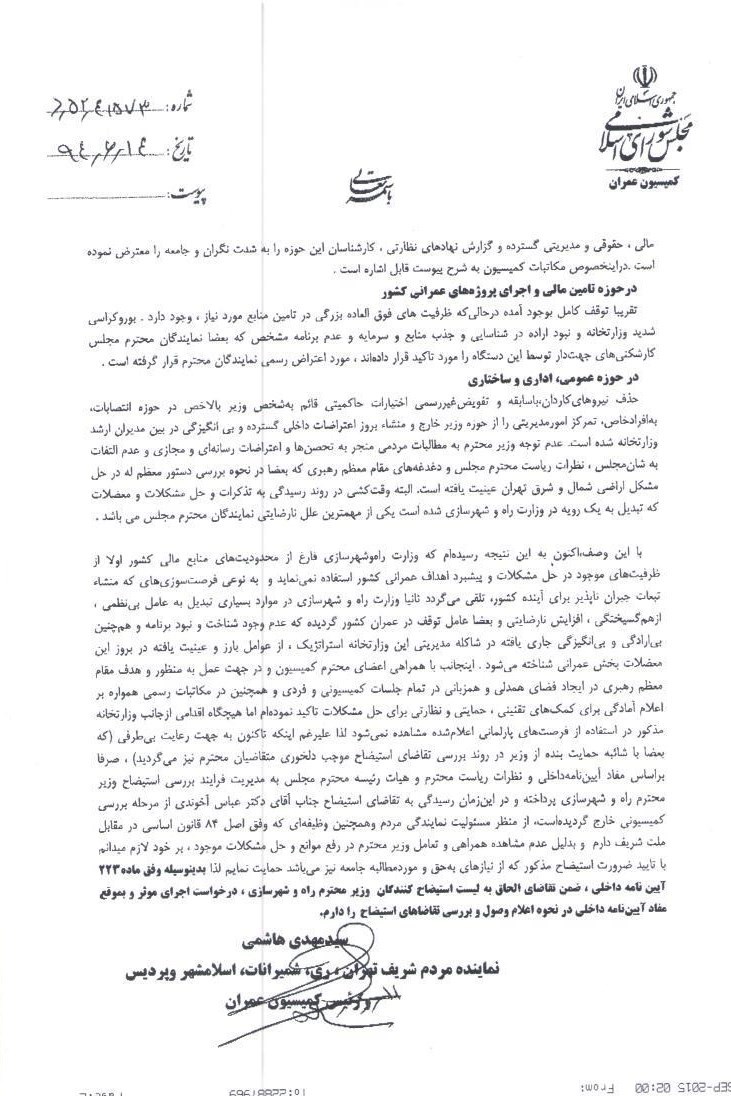 جمهوری اسلامی ایران
مجلس شورای اسلامی
کمیسیون عمران
شماره:
تاریخ: ۹۴٫۶٫۱۴
پیوست:
باسمه تعالی
مالی ، حقوقی و مدیریتی گسترده و گزارش نهادهای نظارتی ، کارشناسان این حوزه را به شدت نگران و جامعه را معترض نموده
است .دراینخصوص مکاتبات کمیسیون به شرح پیوست قابل اشاره است .
درحوزه تامین مالی و اجرای پروژه‌های عمرانی کشور
تقریبا توقف کامل بوجود آمده درحالی‌که ظرفیت های فوق العاده بزرگی در تامین منابع مورد نیاز ، وجود دارد . بوروکراسی
شدید وزارتخانه و نبود اراده در شناسایی و جذب منابع و سرمایه و عدم برنامه مشخص که بعضا نمایندگان محترم مجلس
کارشکنی‌های جهت‌دار توسط این دستگاه را مورد تاکید قرار داده‌اند ، مورد اعتراض رسمی نمایندگان محترم قرار گرفته است .
در حوزه عمومی، اداری و ساختاری
حذف نیروهای‌کاردان،باسابقه و تفویض‌غیررسمی اختیارات حاکمیتی قائم به‌شخص وزیر بالاخص در حوزه انتصابات،
به‌افرادخاص، تمرکز امورمدیریتی را از حوزه وزیر خارج و منشاء بروز اعتراضات داخلی گسترده و بی انگیزگی در بین مدیران ارشد
وزارتخانه شده است. عدم توجه وزیر محترم به مطالبات مردمی منجر به تحصن‌ها و اعتراضات رسانه‌ای و مجازی و عدم التفات
به شان‌مجلس ، نظرات ریاست محترم مجلس و دغدغه‌های مقام معظم رهبری که بعضا در نحوه بررسی دستور معظم له در حل
مشکل اراضی شمال و شرق تهران عینیت یافته است. البته وقت‌کشی در روند رسیدگی به تذکرات و حل مشکلات و معضلات
که تبدیل به یک رویه در وزارت راه و شهرسازی شده است یکی از مهمترین علل نارضایتی نمایندگان محترم مجلس می باشد .
با این وصف،اکنون به این نتیجه رسیده‌ام که وزارت راه‌وشهرسازی فارغ از محدودیت‌های منابع مالی کشور اولا از
ظرفیت‌های موجود در حل مشکلات و پیشبرد اهداف عمرانی کشور استفاده نمی‌نماید و به نوعی فرصت‌سوزی‌های که منشاء
تبعات جبران ناپذیر برای آینده کشور، تلقی می‌گردد ثانیا وزارت راه و شهرسازی در موارد بسیاری تبدیل به عامل بی‌نظمی ،
ازهم‌گسیختگی ، افزایش نارضایتی و بعضا عامل توقف در عمران کشور گردیده که عدم وجود شناخت و نبود برنامه و هم‌چنین
بی‌ارادگی و بی‌انگیزگی جاری یافته در شاکله مدیریتی این وزارتخانه استراتژیک ، از عوامل بارز و عینیت یافته در بروز این
معضلات بخش عمرانی شناخته می‌شود . اینجانب با همراهی اعضای محترم کمیسیون و در جهت عمل به منظور و هدف مقام
معظم رهبری در ایجاد فضای همدلی و همزبانی در تمام جلسات کمیسیونی و فردی و همچنین در مکاتبات رسمی همواره بر
اعلام آمادگی برای کمک‌های تقنینی ، حمایتی و نظارتی برای حل مشکلات تاکید نموده‌ام اما هیچگاه اقدامی ازجانب وزارتخانه
مذکور در استفاده از فرصت‌های پارلمانی اعلام‌شده مشاهده نمی‌شود لذا علیرغم اینکه تاکنون به جهت رعایت بی‌طرفی (که
بعضا با شائبه حمایت بنده از وزیر در روند بررسی تقاضای استیضاح موجب دلخوری متقاضیان محترم نیز می‌گردید) ، صرفا
براساس مفاد آیین‌نامه‌داخلی و نظرات ریاست محترم و هیات رئیسه محترم مجلس به مدیریت فرایند بررسی استیضاح وزیر
محترم راه و شهرسازی پرداخته و در این‌زمان رسیدگی به تقاضای استیضاح جناب آقای دکتر عباس آخوندی از مرحله بررسی
کمیسیونی خارج گردیده‌است، از منظر مسئولیت نمایندگی مردم وهمچنین وظیفه‌ای که وفق اصل ۸۴ قانون اساسی در مقابل
ملت شریف دارم و بدلیل عدم مشاهده همراهی و تعامل وزیر محترم در رفع موانع و حل مشکلات موجود ، بر خود لازم میدانم
با تایید ضرورت استیضاح مذکور که از نیازهای به‌حق و موردمطالبه جامعه نیز می‌باشد حمایت نمایم لذا بدینوسیله وفق ماده۲۲۳
آیین نامه داخلی ، ضمن تقاضای الحاق به لیست استیضاح کنندگان وزیر محترم راه و شهرسازی ، درخواست اجرای موثر و بموقع
مفاد آیین‌نامه داخلی در نحوه اعلام وصول و بررسی تقاضاهای استیضاح را دارم.
سیدمهدی هاشمی
نماینده مردم شریف تهران، ری، شمیرانات، اسلامشهر وپردیس
و رئیس کمیسیون عمران
SEP-2015 02:00 From: